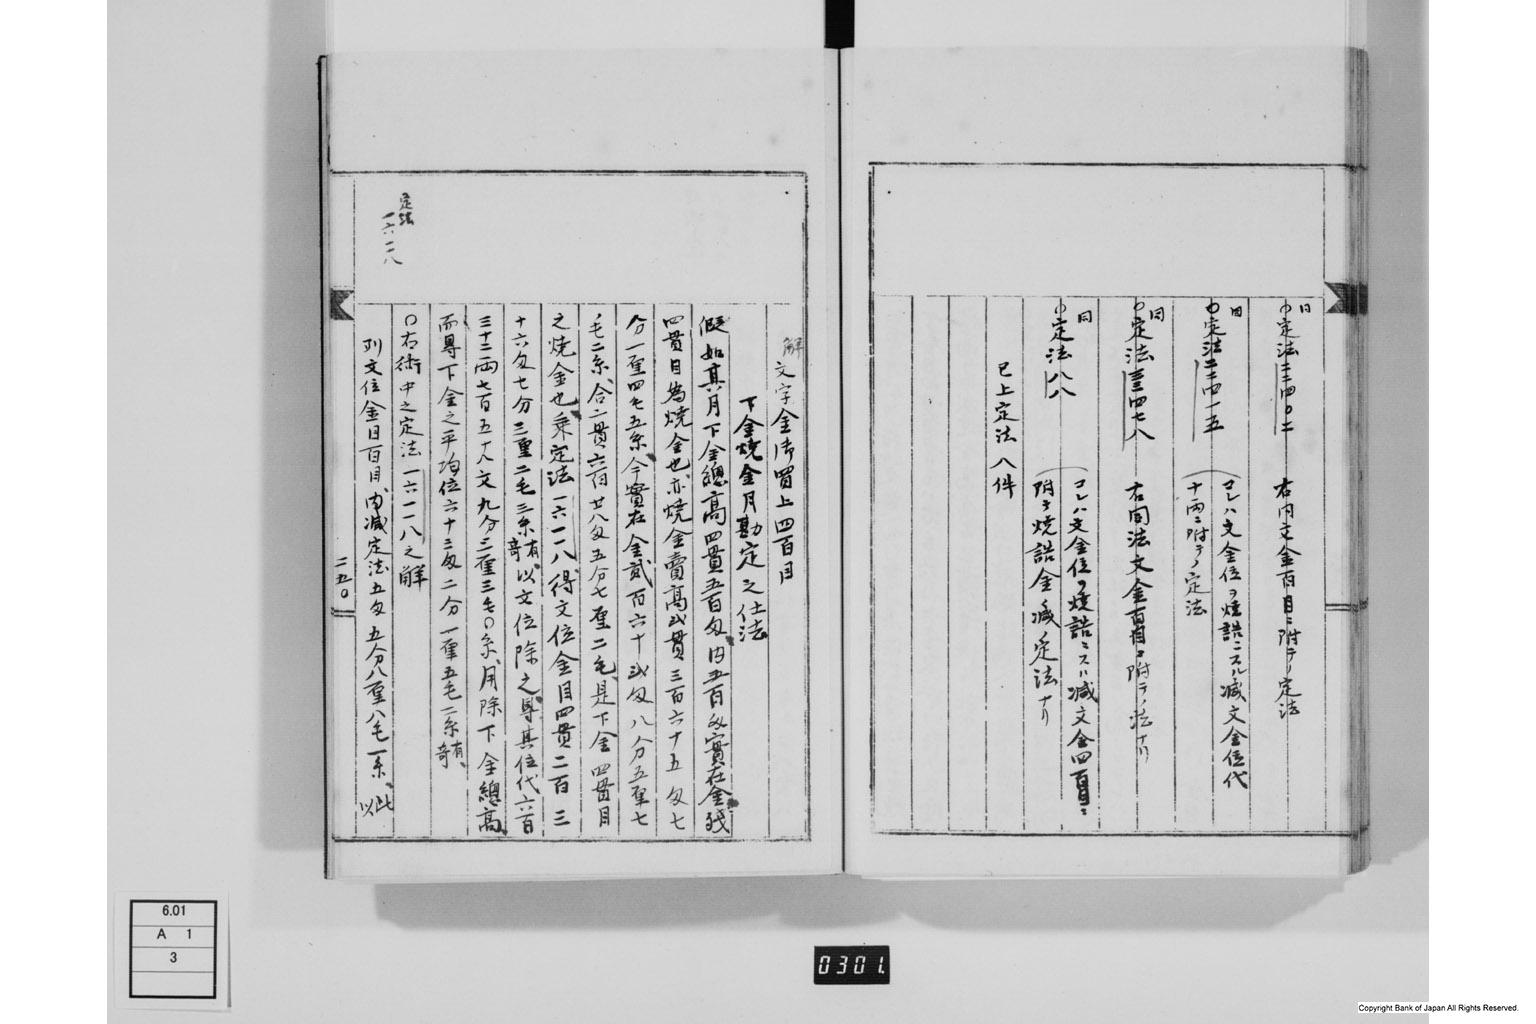 同
〇定法二二四〇二 右同文金百目ニ附テノ定法
同
〇定法二二四一五 (コレハ文金位ヲ焼詰ニスル減文金位代
十両ニ附テノ定法
同
〇定法三三四七八 右同法文金百目ニ附テノ法ナリ
同
〇定法八八 (コレハ文金位ヲ焼詰ニスル減文金四百目ニ
附テ焼詰金減ノ定法ナリ
已上定法八件
解
文字金御買上四百目
下金焼金月勘定之仕法
假如其月下金總高四貫五百匁内五百匁實在金残
四貫目為焼金也亦焼金賣高弐貫三百六十五匁七
分一厘四毛五糸今實在金貳百六十弐匁八分五厘七
毛二糸合二貫六百廿八匁五分七厘二毛是下金四貫目
之焼金也乗定法一六一一八得文位金目四貫二百三
十六匁七分三厘二毛三糸有奇以文位除之得其位代六百
三十二両七百五十八文九分三厘三毛〇糸用除下金總高
而得下金之平均位六十三匁二分一厘五毛二糸有奇
〇右術中之定法一六一一八之解
列文位金目百目内減定法五匁五分八厘八毛一糸以此
定法
一六一一八
二五〇
6.01
A 1
3
0301.
Copyright Bank of Japan All Rights Reserved.